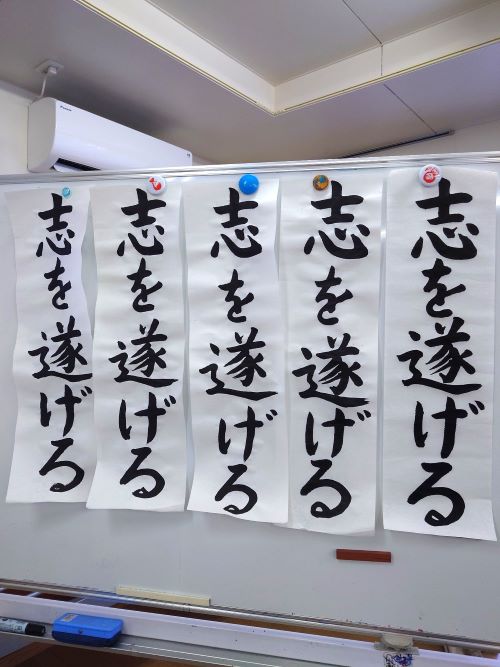 志を遂げる
志を遂げる
志を遂げる
志を遂げる
志を遂げる